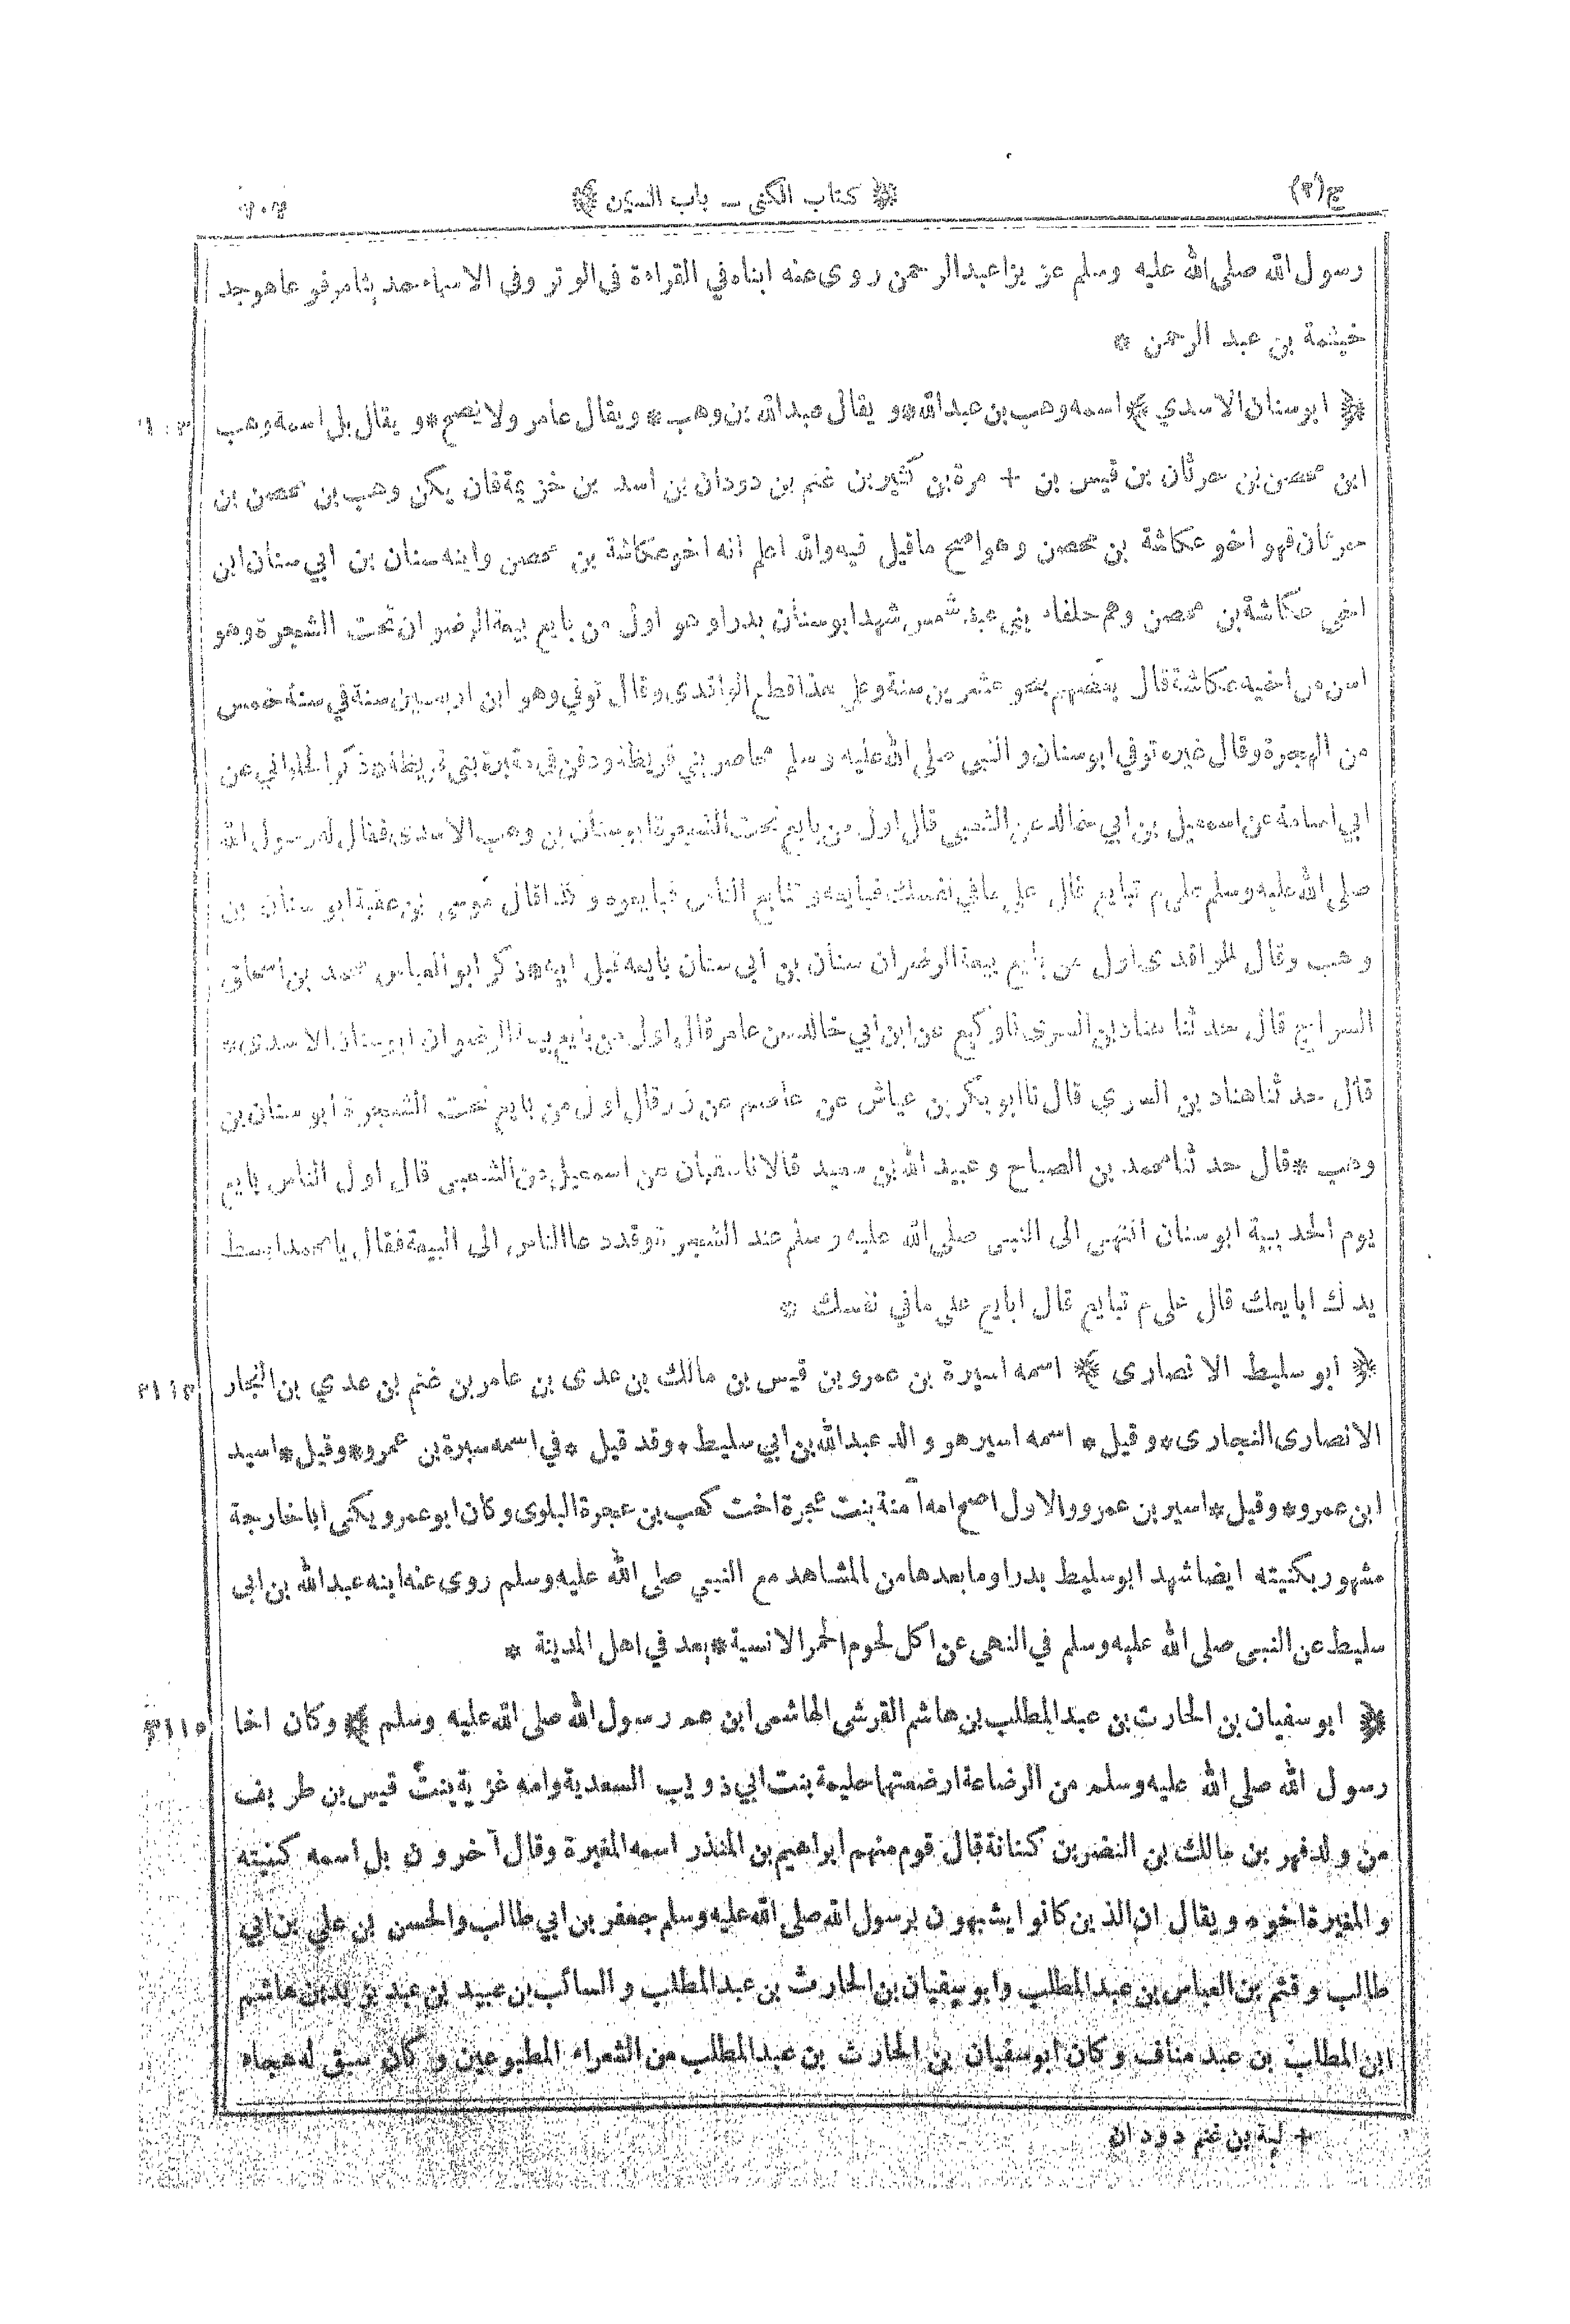 ج(٢) ﴿ كتاب الكنى – باب السين ﴾
رسول الله صلى الله عليه وسلم عزيزا عبد الرحمن روى عنه ابناه في القراءة فى الوتر وفى الاسماء حديثا مرفوعا هو جد
خيثمة بن عبد الرحمن *
﴿ ابو سنان الاسدي ﴾ اسمه وهب بن عبد الله * و يقال عبد الله بن وهب * ويقال عامر ولا يصح * و يقال بل اسمه وهب
ابن محصن بن حرثان بن قيس بن + مرة بن كثير بن غنم بن دودان بن اسد بن خزيمة فان يكن وهب بن محصن بن
حرثان فهو اخو عكاشة بن محصن وهو اصح ما قيل فيه والله اعلم انه اخو عكاشة بن محصن وابنه سنان بن ابي سنان ابن
اخى عكاشة بن محصن وهم حلفاء بني عبد شمس شهد ابو سنان بدرا و هو اول من بايع بيعة الرضوان تحت الشجرة وهو
اسن من اخيه عكاشة قال بعضهم بنحو عشرين سنة وعلى هذا قطع الواقدى وقال توفي وهو ابن اربعين سنة في سنة خمس
من الهجرة وقال غيره توفي ابو سنان و النبي صلى الله عليه وسلم محاصر بني قريظة ودفن فى مقبرة بنى قريظة * ذكر الحلواني عن
ابي اسامة عن اسمعيل بن ابي خالد عن الشعبى قال اول من بايع تحت الشجرة ابو سنان بن وهب الاسدى فقال له رسول الله
صلى الله عليه وسلم على م تبايع قال على ما في نفسك فبايعه و تتابع الناس فبايعوه و كذا قال موسى بن عقبة ابو سنان بن
وهب وقال الواقدى اول من بايع بيعة الرضوان سنان بن ابى سنان بايعه قبل ابيه * ذكر ابو العباس محمد بن اسحاق
السراج قال حدثنا هناد بن السرى نا وكيع عن ابن ابي خالد عن عامر قال اول من بايع بيعة الرضوان ابو سنان الاسدى *
قال حدثنا هناد بن السري قال نا ابو بكر بن عياش عن عاصم عن زر قال اول من بايع تحت الشجرة ابو سنان بن
وهب * قال حدثنا محمد بن الصباح و عبيد الله بن سعيد قالا نا سفيان عن اسمعيل عن الشعبى قال اول الناس بايع
يوم الحديبية ابو سنان انتهى الى النبى صلى الله عليه وسلم عند الشجرة وقد دعا الناس الى البيعة فقال يا محمد ابسط
يدك ابايعك قال على م تبايع قال ابايع على ما في نفسك *
﴿ ابو سليط الانصارى ﴾ اسمه اسيرة بن عمرو بن قيس بن مالك بن عدى بن عامر بن غنم بن عدي بن النجار
الانصارى النجارى * و قيل * اسمه اسير هو والد عبد الله بن ابي سليط * وقد قيل * في اسمه سبرة بن عمرو * وقيل * اسيد
ابن عمرو * وقيل * اسير بن عمرو والاول اصح امه آمنة بنت عجرة اخت كعب بن عجرة البلوى وكان ابو عمرو يكنى ابا خارجة
مشهور بكنيته ايضا شهد ابو سليط بدرا وما بعدها من المشاهد مع النبي صلى الله عليه وسلم روى عنه ابنه عبد الله بن ابى
سليط عن النبى صلى الله عليه وسلم في النهى عن اكل لحوم الحمر الانسية * يعد في اهل المدينة *
﴿ ابو سفيان بن الحارث بن عبد المطلب بن هاشم القرشى الهاشمى ابن عم رسول الله صلى الله عليه وسلم ﴾ وكان اخا ٣١١٥
رسول الله صلى الله عليه وسلم من الرضاعة ارضعتها حليمة بنت ابي ذويب السعدية وامه غزية بنت قيس بن طريف
من ولد فهر بن مالك بن النضر بن كنانة قال قوم منهم ابراهيم بن المنذر اسمه المغيرة وقال آخرون بل اسمه كنيته
والمغيرة اخوه و يقال ان الذين كانوا يشبهون برسول الله صلى الله عليه وسلم جعفر بن ابي طالب والحسن بن علي بن ابي
طالب وقثم بن العباس بن عبد المطلب وابو سفيان بن الحارث بن عبد المطلب والسائب بن عبيد بن عبد يزيد بن هاشم
ابن المطلب بن عبد مناف وكان ابو سفيان بن الحارث بن عبد المطلب من الشعراء المطبوعين وكان سبق له هجاء
+ لبة بن غنم دودان